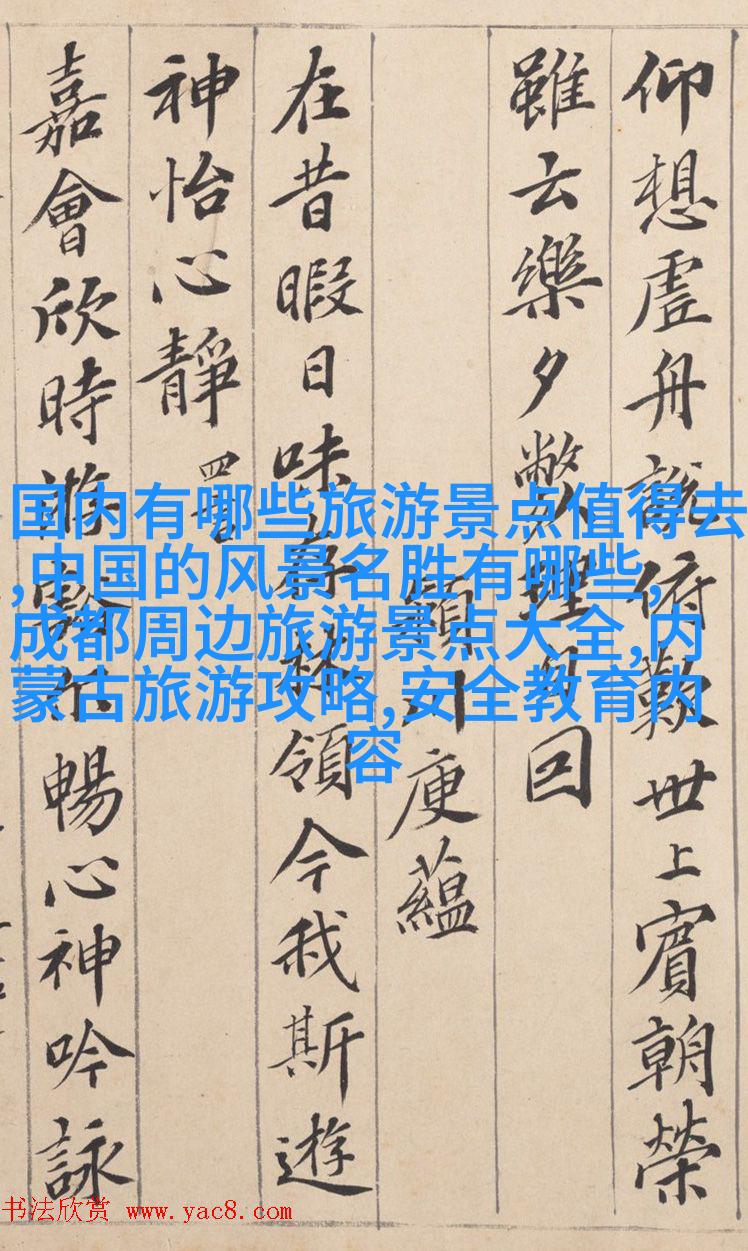 仰想虛舟說俯歎世上賓朝榮
雖云樂夕斃理自回
潁川庾蘊
在昔暇日味存林領今我斯遊
神怡心靜 四言
嘉會欣時遊豁尔暢心神吟詠
国内有哪些旅游景点值得去
,中国的风景名胜有哪些,
成都周边旅游景点大全,内
蒙古旅游攻略,安全教育内
容
书法欣赏 www.yac8.com